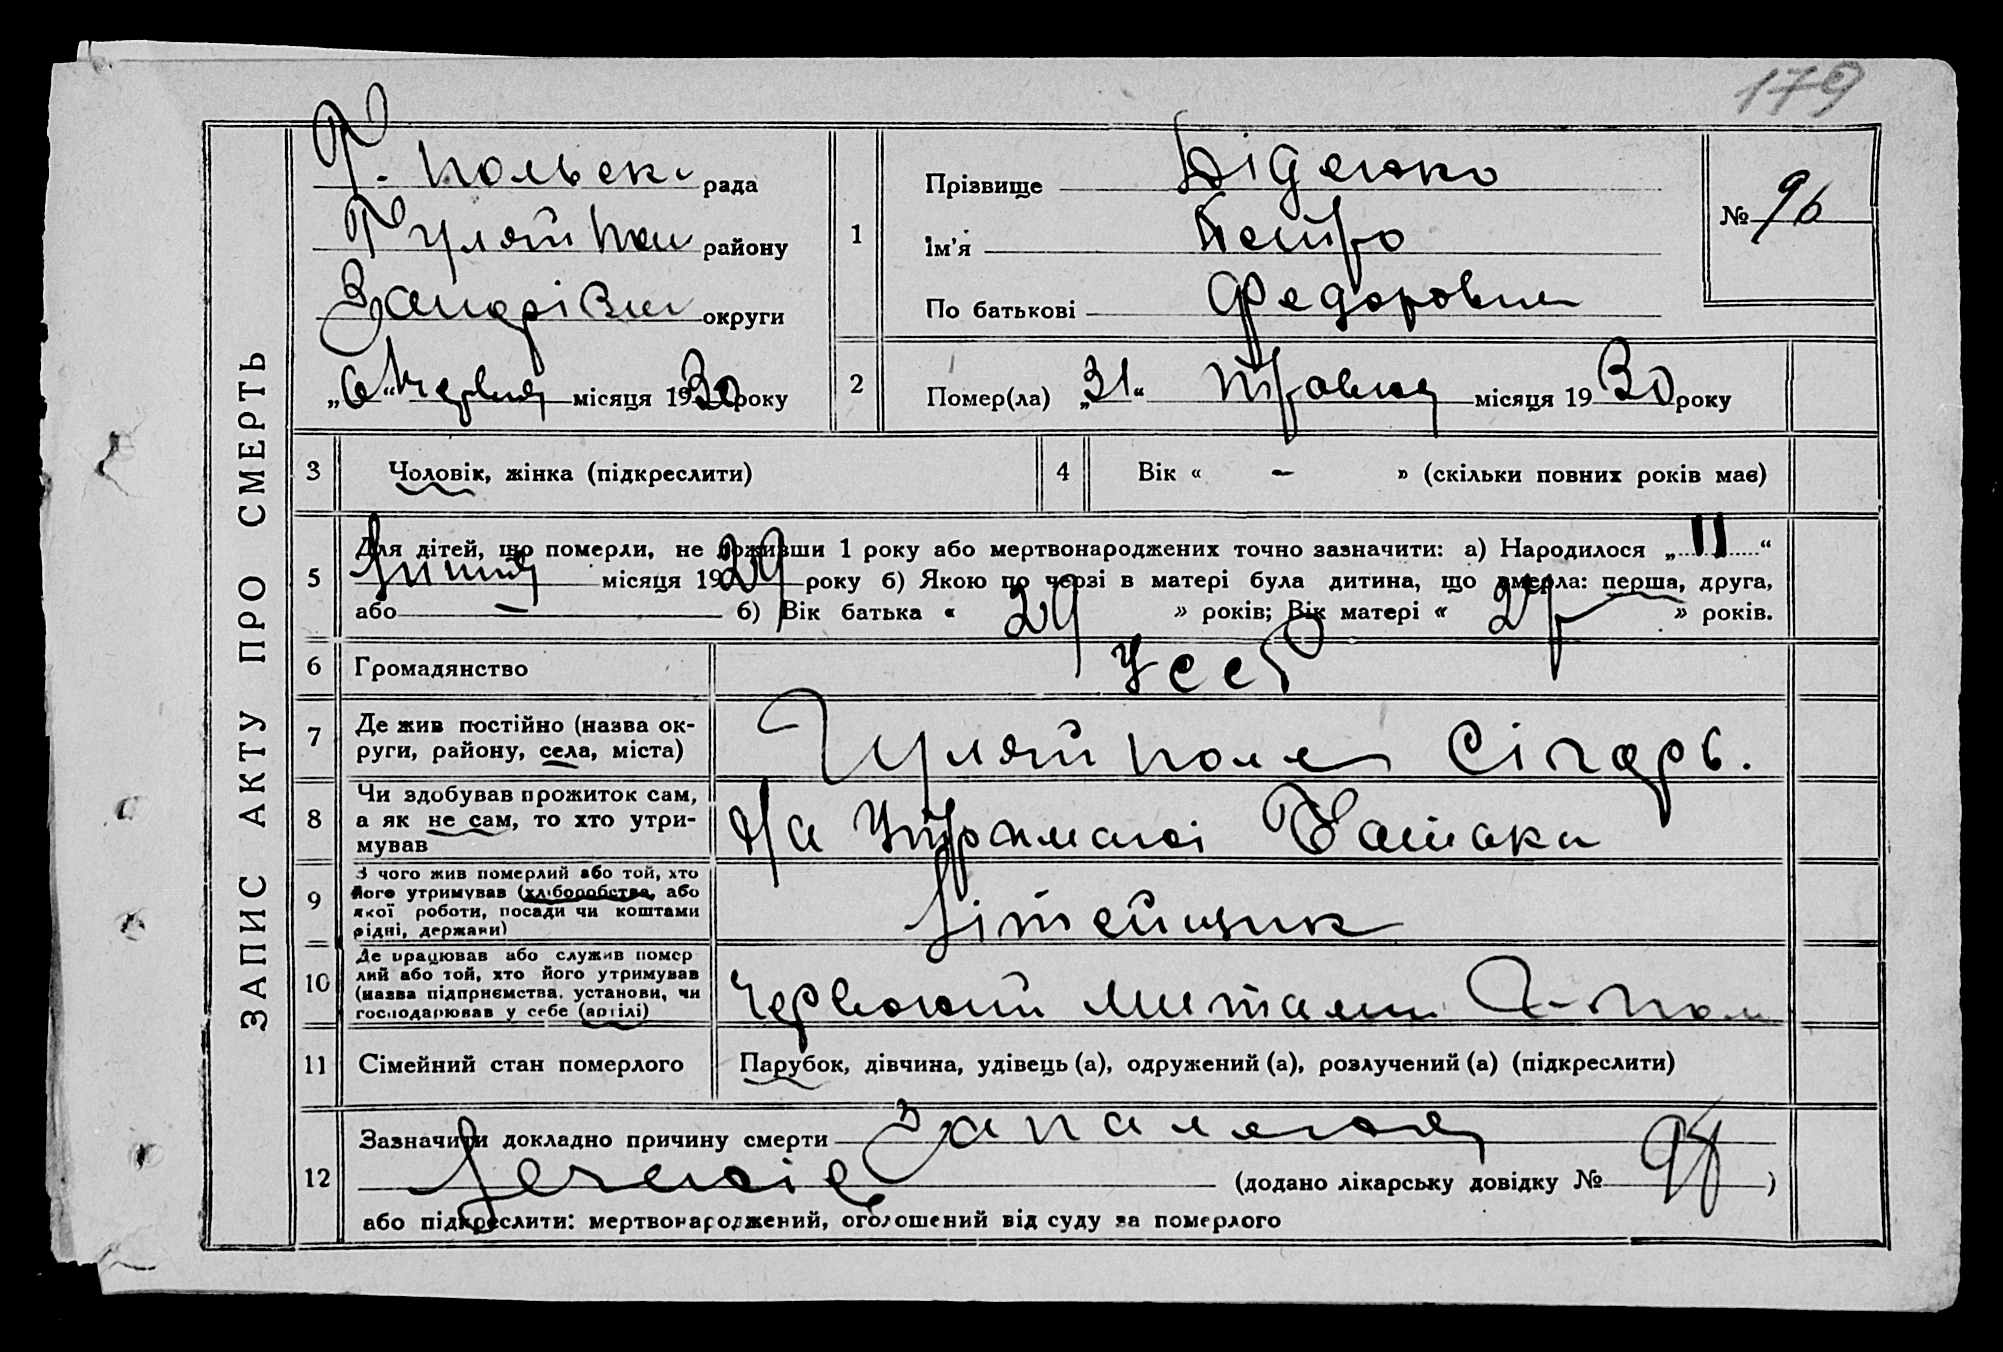 179
ЗАПИС АКТУ ПРО СМЕРТЬ
Г. польськ рада
Гуляйпол району
Запоріжж округи
„6“ червня місяця 1930 року
1
Прізвище Діденко
Ім'я Петро
По батькові Федорович
№ 96
2
Помер(ла) „31“ травня місяця 1930 року
3
Чоловік, жінка (підкреслити)
4
Вік « — » (скільки повних років має)
5
Для дітей, що померли, не доживши 1 року або мертвонароджених точно зазначити: а) Народилося „11“
липня місяця 1929 року б) Якою по черзі в матері була дитина, що вмерла: перша, друга,
або — б) Вік батька « 29 » років; Вік матері « 27 » років.
6
Громадянство
УССР
7
Де жив постійно (назва ок-
руги, району, села, міста)
Гуляйполе
8
Чи здобував прожиток сам,
а як не сам, то хто утри-
мував
На утриманні батька
9
З чого жив померлий або той, хто
його утримував (хліборобство, або
якої роботи, посади чи коштами
рідні, держави)
Літейщик
10
Де працював або служив помер
лий або той, хто його утримував
(назва підприємства, установи, чи
господарював у себе (артілі)
Червоний Металіст Г-пол
11
Сімейний стан померлого
Парубок, дівчина, удівець (а), одружений (а), розлучений (а) (підкреслити)
12
Зазначити докладно причину смерти Запалення
легенів (додано лікарську довідку № )
або підкреслити: мертвонароджений, оголошений від суду за померлого